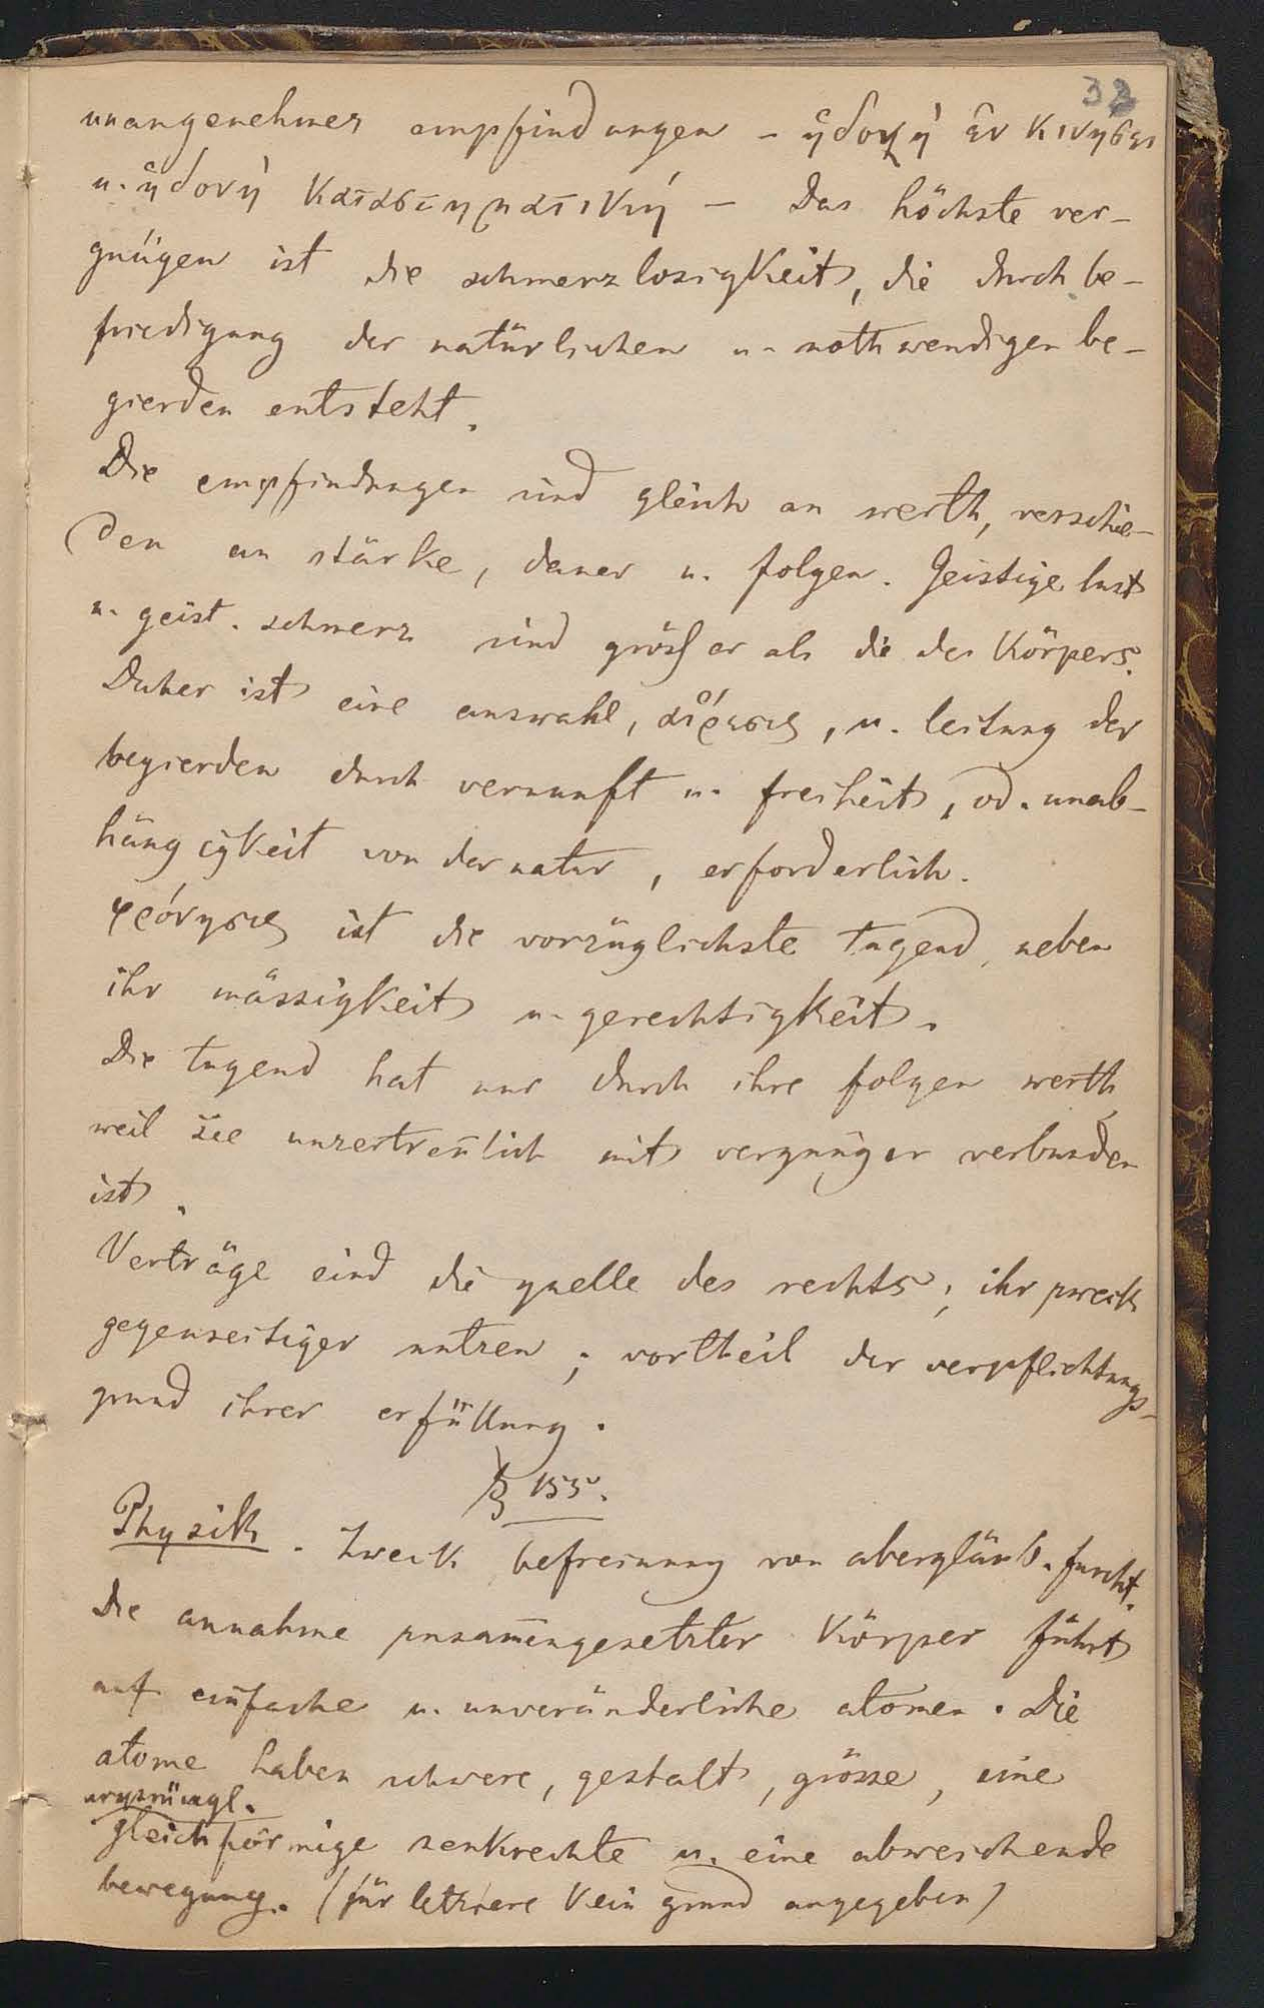 32
unangenehmer empfindungen – ἡδονή ἐν κινησει
u. ἡδονή καταστηματική – Das höchste ver-
gnügen ist die schmerzlosigkeit, die durch be-
friedigung der natürlichen u. nothwendigen be-
gierden entsteht.
Die empfindungen sind gleich an werth, verschie-
den an stärke, dauer u. folgen. Geistige lust
u. geist. schmerz sind größer als die des Körpers.
Daher ist eine auswahl, αἵρεσις, u. leitung der
begierden durch vernunft u. freiheit, od. unab-
hängigkeit von der natur, erforderlich.
φρόνησις ist die vorzüglichste tugend, neben
ihr mässigkeit u. gerechtigkeit.
Die tugend hat nur durch ihre folgen werth,
weil sie unzertreñlich mit vergnügen verbunden
ist.
Verträge sind die quelle des rechts; ihr zweck
gegenseitiger nutzen; vortheil der verpflichtungs-
grund ihrer erfüllung.
§ 155.
Physik. Zweck befreiung von abergläub. furcht.
Die annahme zusam̅engesetzter Körper führt
auf einfache u. unveränderliche atomen. Die
atome haben schwere, gestalt, grösse, eine
ursprüngl.
gleichförmige senkrechte u. eine abweichende
bewegung. (für letztere kein grund angegeben)